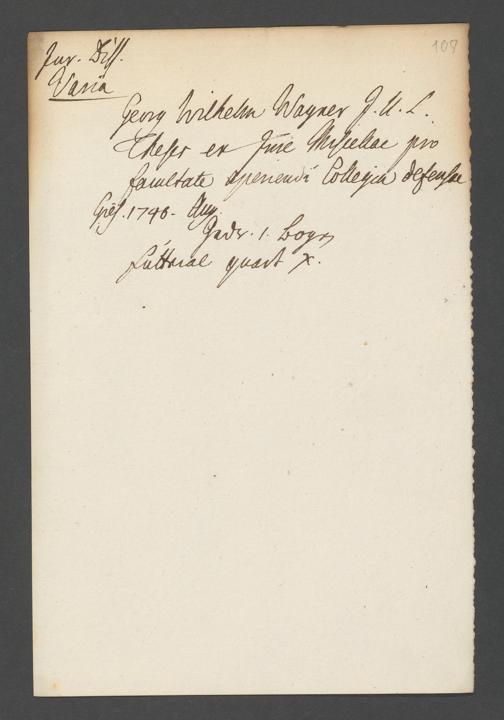 Jur. Diss.
Varia
109
Georg Wilhelm Wagner J. U. L.
Theses ex Jure Miscellae pro
facultate aperiendi Collegia defensae
1746. Aug.
Gedr. 1. Bogen
quart X.